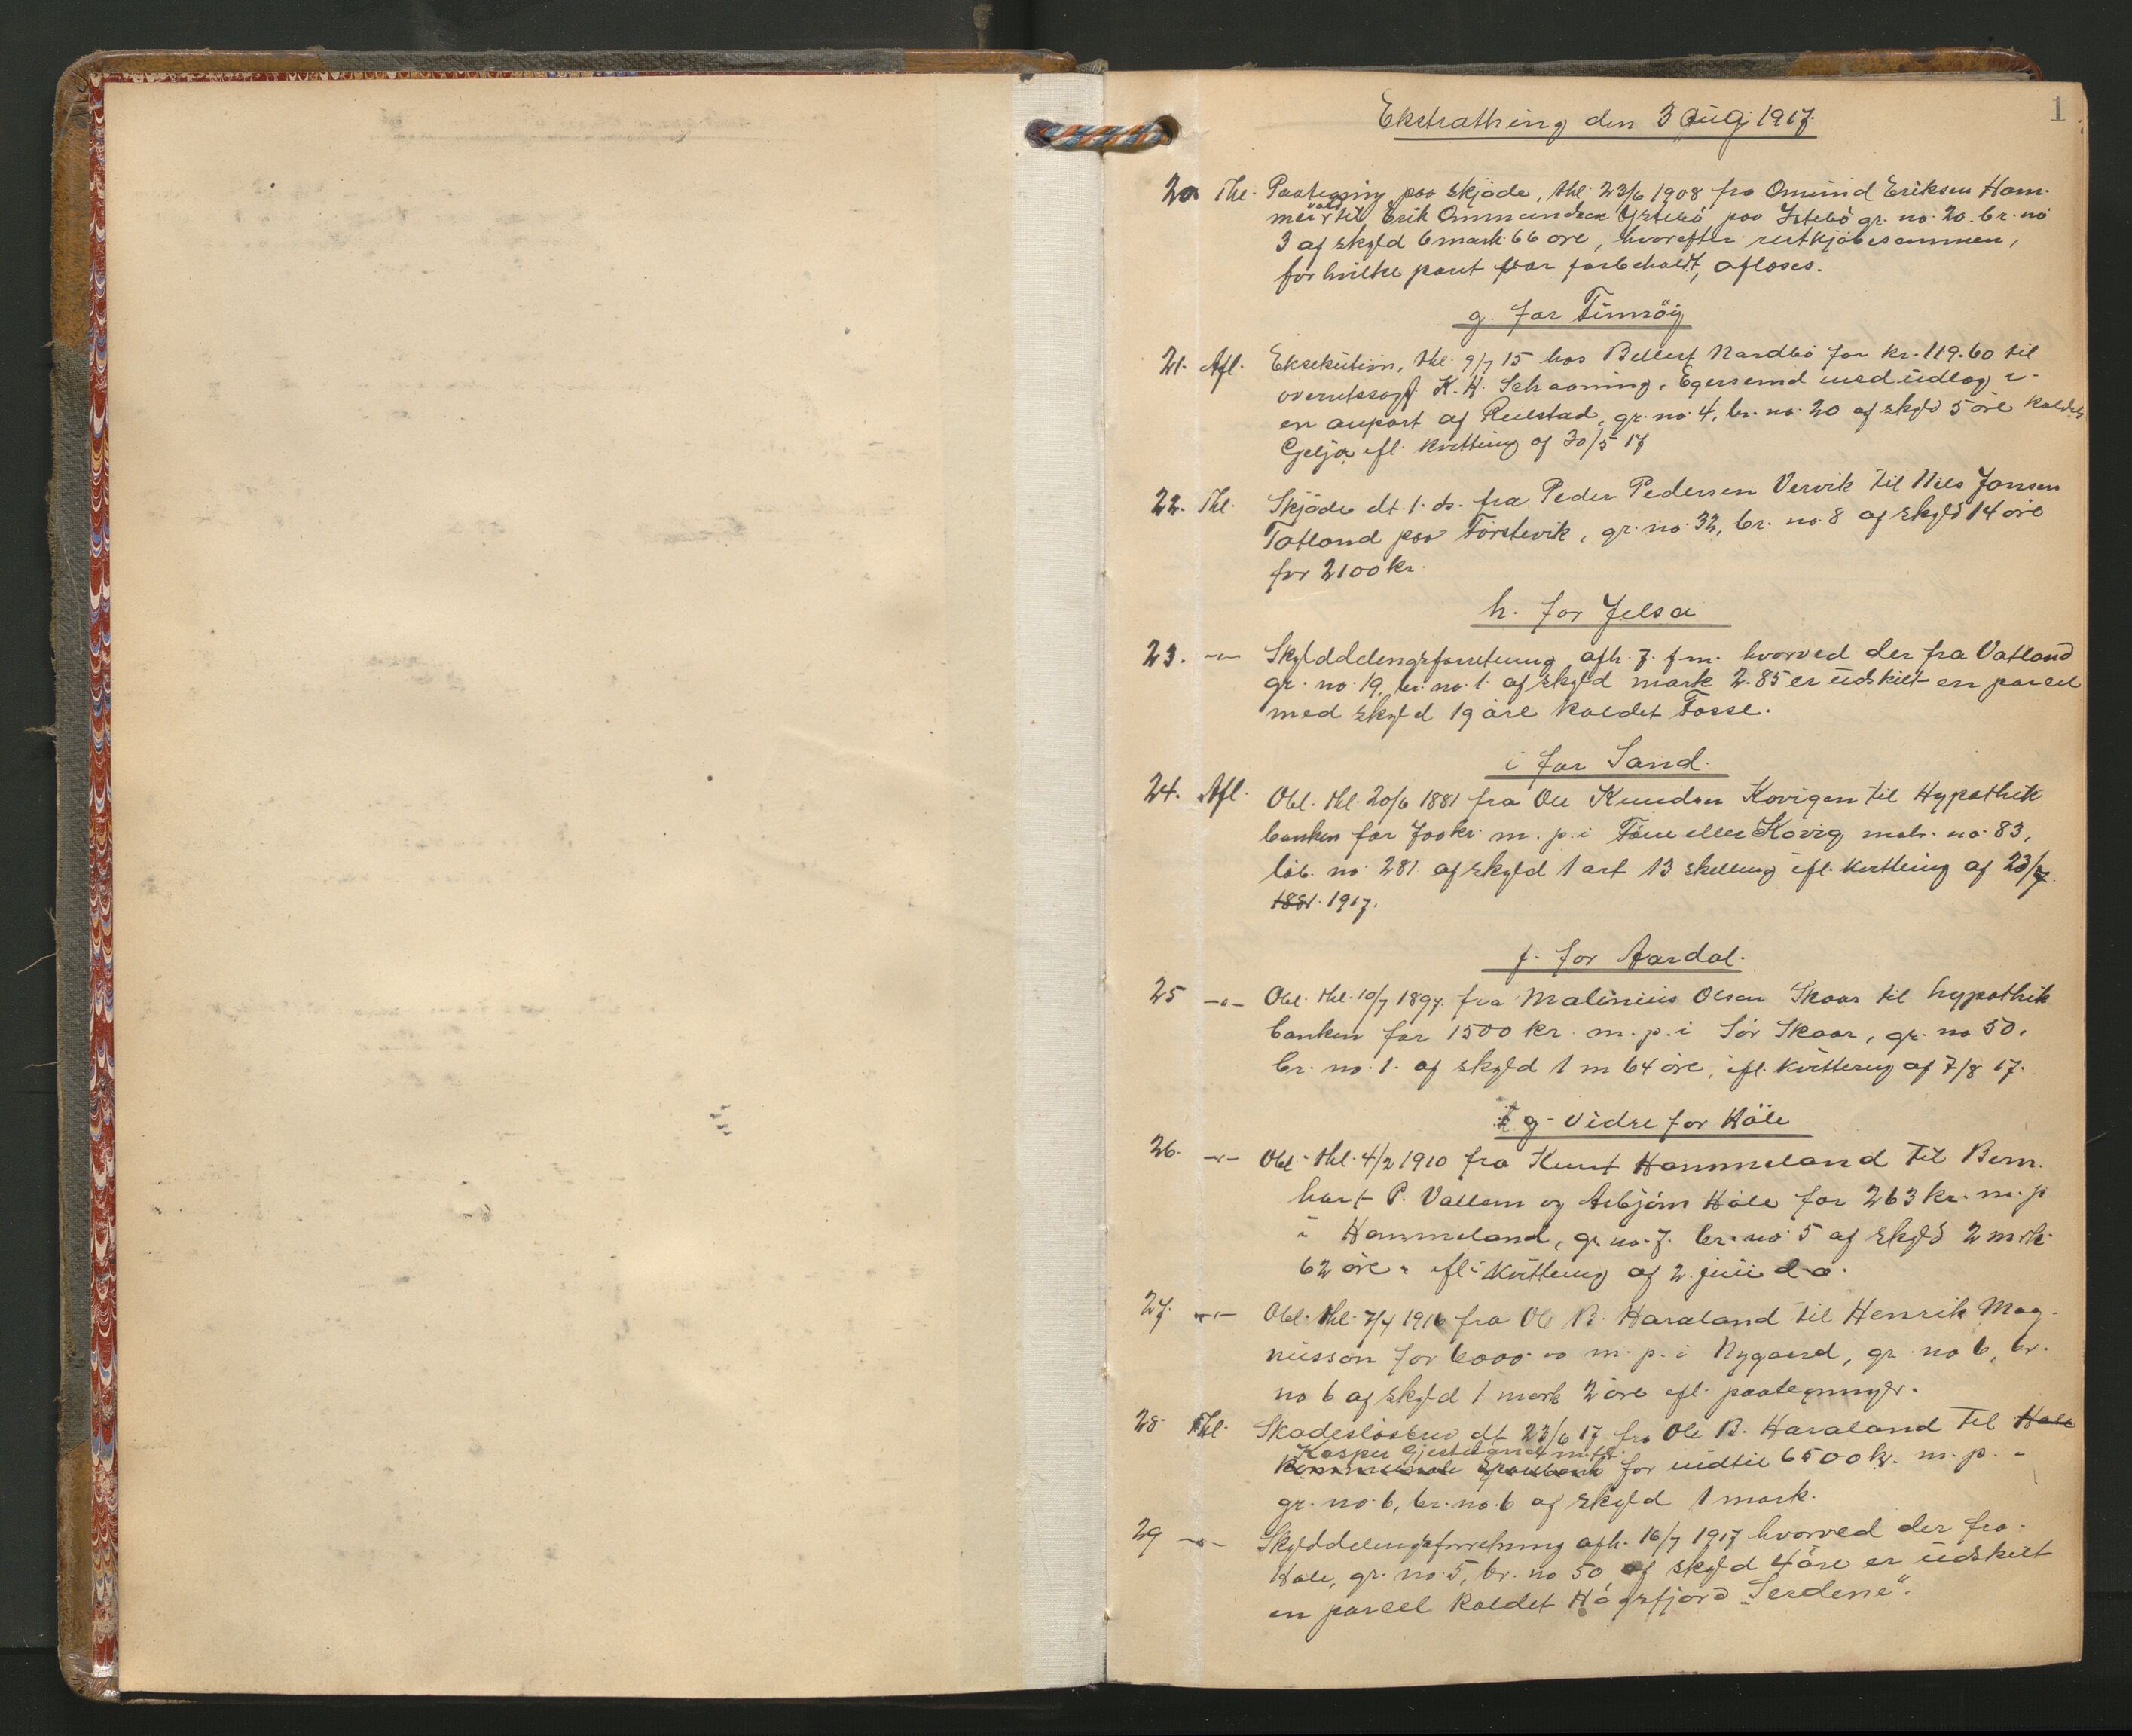 1
Ekstrathing den 3 Aug 1917.
20 Thl. Paategning paa skjøde, thl. 23/6 1908 fra Omund Eriksen Ham-
til Erik Ommundsen Ystebö paa Ystebö gr. no. 20. br. no
3 af skyld 6 mark 66 øre, hvorefter restkjøbesummen,
for hvilke pant var forbeholdt, afløses.
g. for Finnöy
21. Afl. Eksekution, thl. 9/7 15 hos Bellest Nordbö for kr. 119.60 til
overretssagf. K. H. Schaaning, Egersund med udlæg i
en anpart af Reilstad, gr. no. 4, br. no. 20 af skyld 5 øre kaldet
Gelja ifl. kvittering af 30/5 17
22. Thl. Skjøde dt. 1. ds. fra Peder Pedersen Vervik til Nils Jonsen
Tatland paa Förstevik, gr. no. 32, br. no. 8 af skyld 14 øre
for 2100 kr.
h. for Jelsa
23. -"- Skylddelingsforretning afh. 7. f.m. hvorved der fra Vatland
gr. no. 19, br. no. 1 af skyld mark 2.85 er udskilt en parcel
med skyld 19 øre kaldet Fosse.
i for Sand.
24. Afl. Obl. thl. 20/6 1881 fra Ole Knudsen Kovigen til Hypothek
banken for 700 kr. m. p. i eller Kovig matr. no. 83,
løb. no. 281 af skyld 1 ort 13 skilling ifl. kvittering af 23/7
1881. 1917.
f. for Aardal.
25 -"- Obl. thl. 10/7 1897 fra Malinius Olsen Skaar til hypothek
banken for 1500 kr. m. p. i Sör Skaar, gr. no 50,
br. no. 1. af skyld 1 m 64 øre, ifl. kvittering af 7/8 17.
g - Vidre for Höle
26. -"- Obl. thl. 4/2 1910 fra Knut Hammeland til Bern-
hart P. Vallem og Asbjörn Höle for 263 kr. m. p
i Hammeland, gr. no. 7. br. no 5 af skyld 2 mrk.
62 øre. ifl. kvittering af 2. juni d. a.
27. -"- Obl. thl. 7/4 1916 fra Ole B. Haraland til Henrik Mag-
nusson for 6000.00 m. p. i Nygaard, gr. no 6, br.
no 6 af skyld 1 mark 2 øre ifl. paategninger.
28. Thl. Skadesløsbrev dt. 23/6 17 fra Ole B. Haraland til Høle
Kasper Gjesteland m.fl.
Kommunale Sparebank for indtil 6500 kr. m. p. i
gr. no. 6, br. no. 6 af skyld 1 mark.
29 -"- Skylddelingsforretning afh. 16/7 1917 hvorved der fra
Høle, gr. no. 5, br. no 50 af skyld 4 øre er udskilt
en parcel kaldet Högsfjord „Serdene".